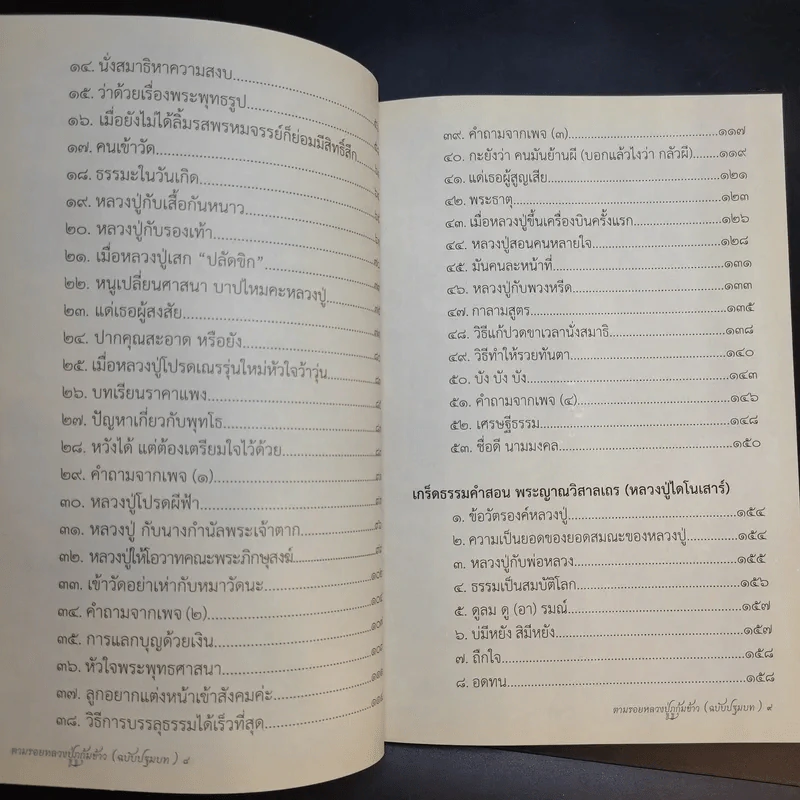 ๑๔. นั่งสมาธิหาความสงบ
๑๕. ว่าด้วยเรื่องพระพุทธรูป
๑๖. เมื่อยังไม่ได้ลิ้มรสพรหมจรรย์ก็ย่อมมีสิทธิ์สึก
๑๗. คนเข้าวัด
๑๘. ธรรมะในวันเกิด
๑๙. หลวงปู่กับเสื้อกันหนาว
๒๐. หลวงปู่กับรองเท้า
๒๑. เมื่อหลวงปู่เสก “ปลัดขิก”
๒๒. หนูเปลี่ยนศาสนา บาปไหมคะหลวงปู่
๒๓. แด่เธอผู้สงสัย
๒๔. ปากคุณสะอาด หรือยัง
๒๕. เมื่อหลวงปู่โปรดเณรรุ่นใหม่หัวใจว้าวุ่น
๒๖. บทเรียนราคาแพง
๒๗. ปัญหาเกี่ยวกับพุทโธ
๒๘. หวังได้ แต่ต้องเตรียมใจไว้ด้วย
๒๙. คำถามจากเพจ (๑)
๓๐. หลวงปู่โปรดผีฟ้า
๓๑. หลวงปู่ กับนางกำนัลพระเจ้าตาก
๓๒. หลวงปู่ให้โอวาทคณะพระภิกษุสงฆ์
๓๓. เข้าวัดอย่าเห่ากับหมาวัดนะ
๓๔. คำถามจากเพจ (๒)
๓๕. การแลกบุญด้วยเงิน
๓๖. หัวใจพระพุทธศาสนา
๓๗. ลูกอยากแต่งหน้าเข้าสังคมค่ะ
๓๘. วิธีการบรรลุธรรมได้เร็วที่สุด
ตามรอยหลวงปู่ภูกัมข้าว (ฉบับปฐมบท ) ๘
๓๙. คำถามจากเพจ (๓)...๑๑๗
๔๐. กะยังว่า คนมันย้านผี (บอกแล้วไงว่า กลัวผี)...๑๑๙
๔๑. แด่เธอผู้สูญเสีย...๑๒๑
๔๒. พระธาตุ...๑๒๓
๔๓. เมื่อหลวงปู่ขึ้นเครื่องบินครั้งแรก...๑๒๖
๔๔. หลวงปู่สอนคนหลายใจ...๑๒๘
๔๕. มันคนละหน้าที่...๑๓๑
๔๖. หลวงปู่กับพวงหรีด...๑๓๓
๔๗. กาลามสูตร...๑๓๕
๔๘. วิธีแก้ปวดขาเวลานั่งสมาธิ...๑๓๘
๔๙. วิธีทำให้รวยทันตา...๑๔๐
๕๐. บัง บัง บัง...๑๔๓
๕๑. คำถามจากเพจ (๔)...๑๔๖
๕๒. เศรษฐีธรรม...๑๔๘
๕๓. ชื่อดี นามมงคล...๑๕๐
เกร็ดธรรมคำสอน พระญาณวิสาลเถร (หลวงปู่ไดโนเสาร์)
๑. ข้อวัตรองค์หลวงปู่...๑๕๔
๒. ความเป็นยอดของยอดสมณะของหลวงปู่...๑๕๔
๓. หลวงปู่กับพ่อหลวง...๑๕๕
๔. ธรรมเป็นสมบัติโลก...๑๕๖
๕. ดูลม ดู (อา) รมณ์...๑๕๗
๖. บ่มีหยัง สิมีหยัง...๑๕๗
๗. ถืกใจ...๑๕๘
๘. อดทน...๑๕๘
ตามรอยหลวงปู่ภูกัมข้าว (ฉบับปฐมบท ) ๙